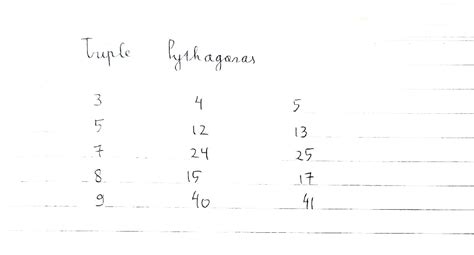 Truple Pythagoras
3 4 5
5 12 13
7 24 25
8 15 17
9 40 41